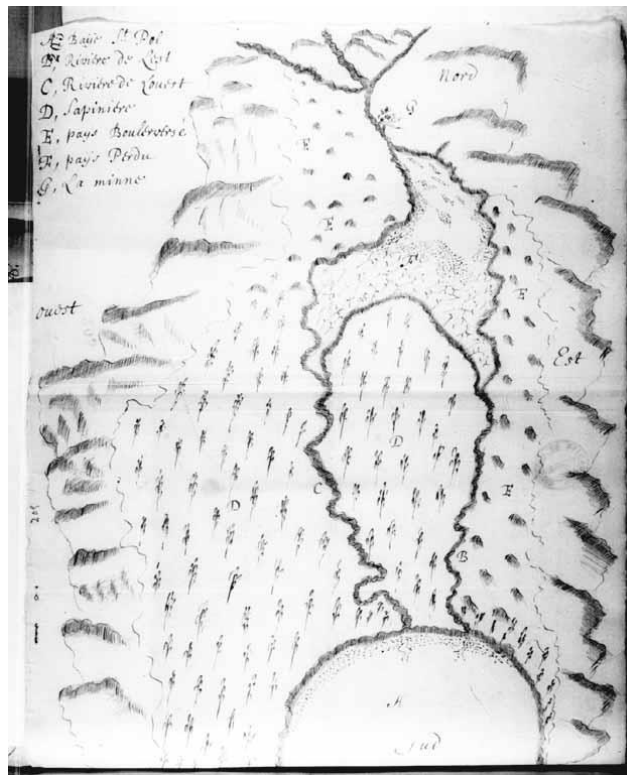 A, Baÿe St Pol
B, Riviére de Lest
C, Riviére de Louest
D, Sapiniére
E, paÿs Bouleverse
F, paÿs Perdu
G, La minne
Nord
G
E
E
F
E
ouest
Est
D
D
C
E
B
A
Sud